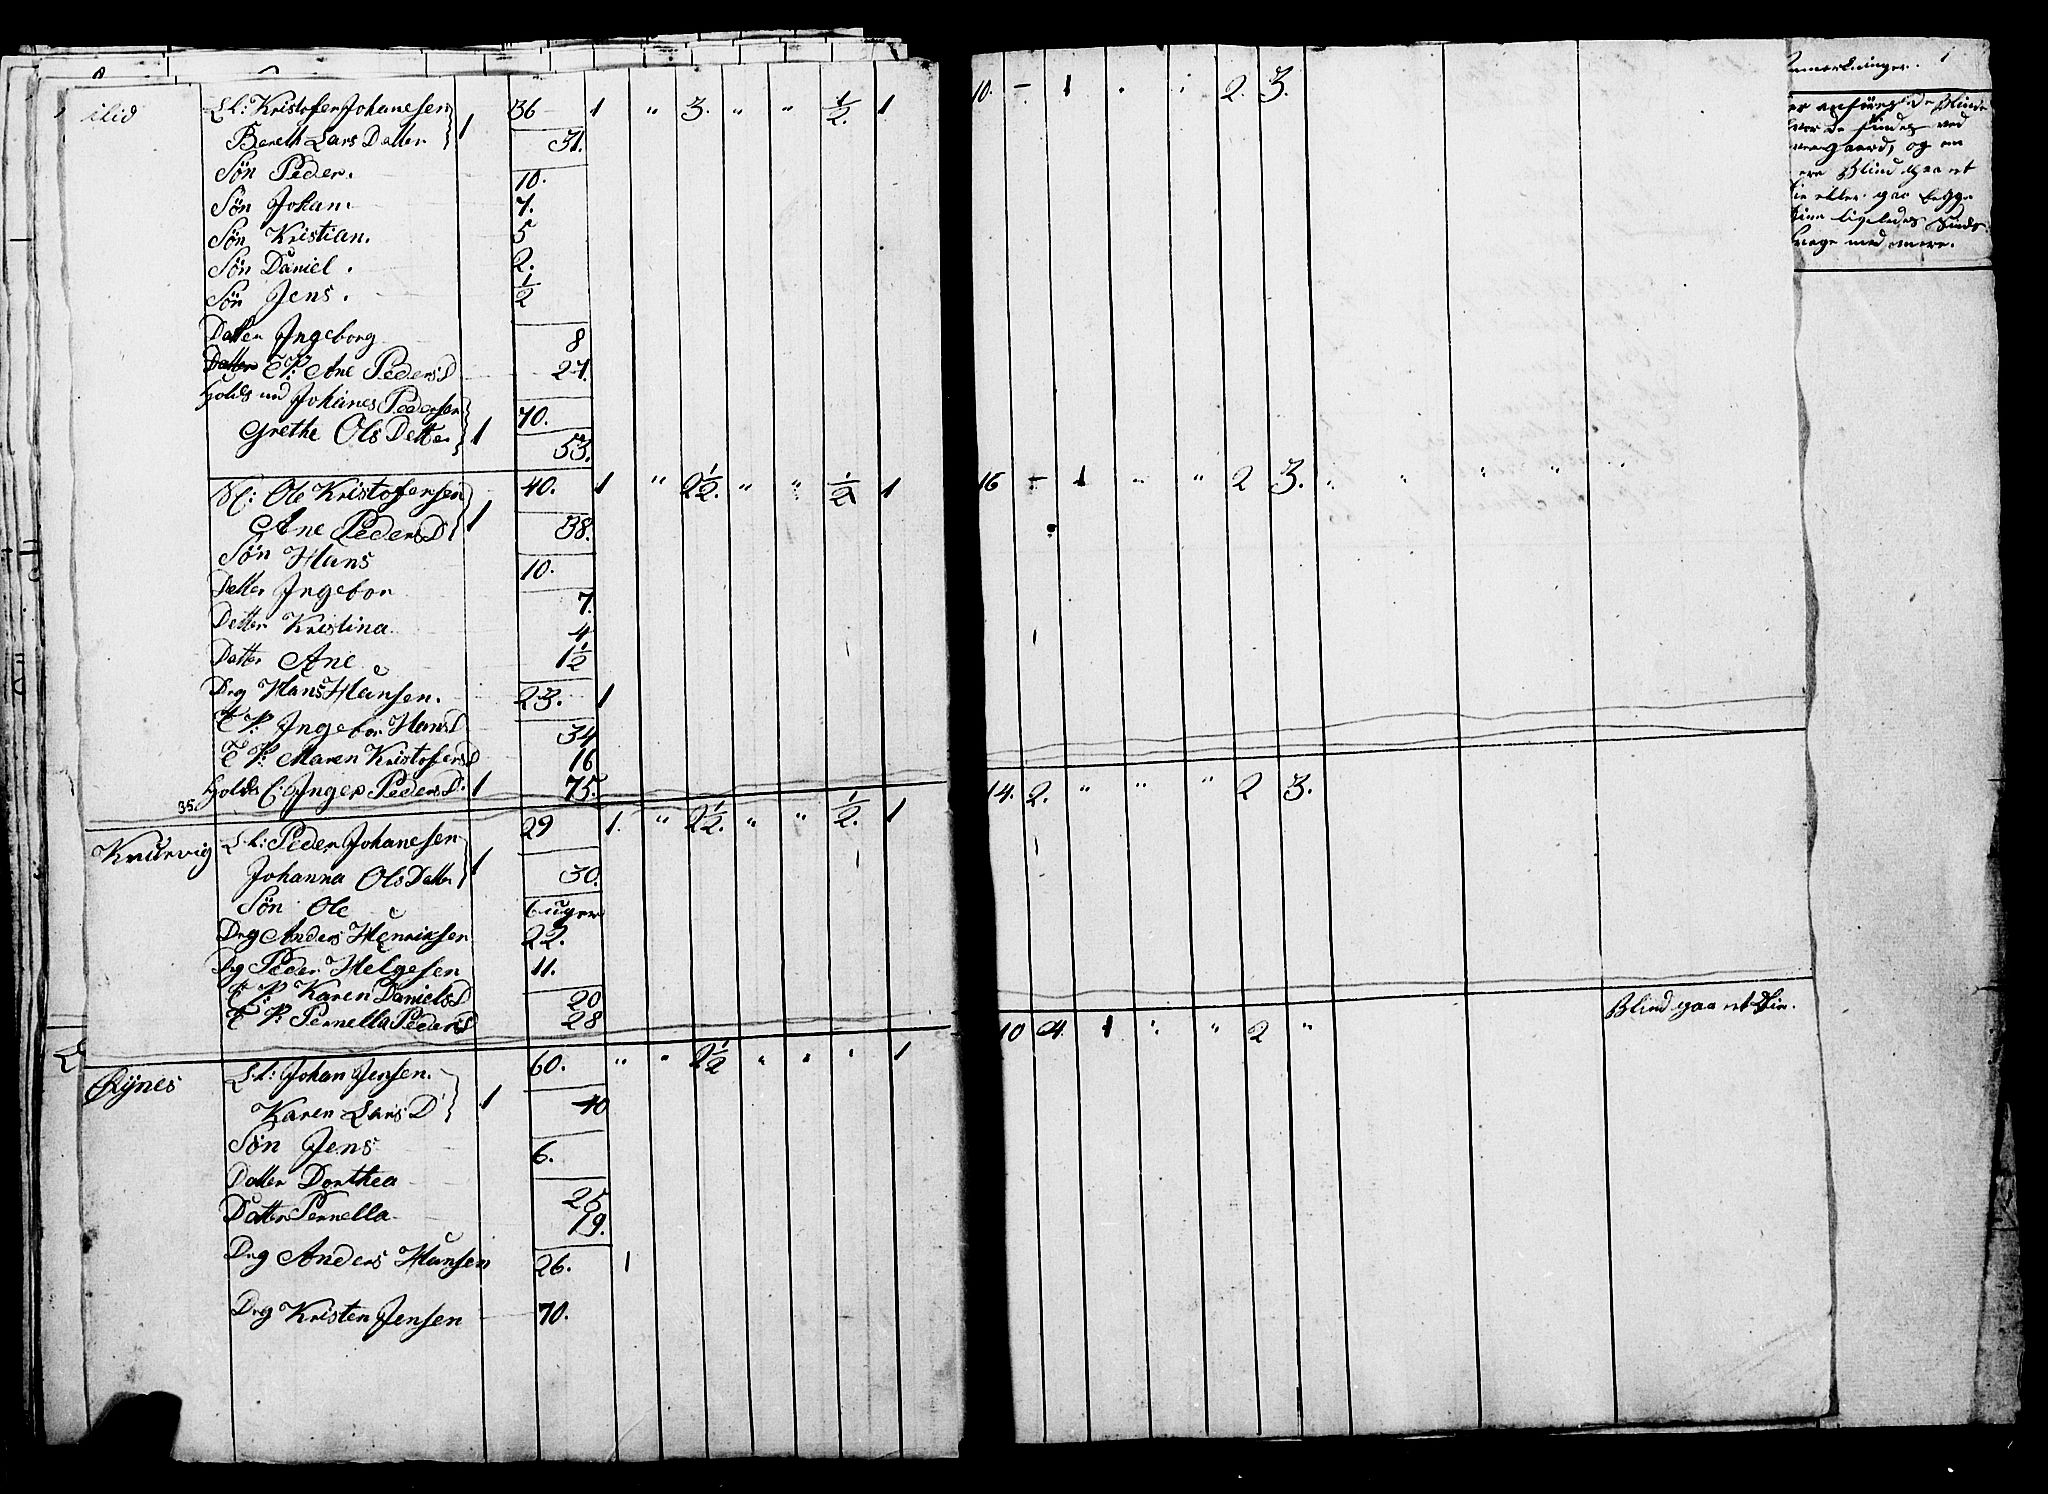 ilid L.l: Kristofer Johanesen 1 36 1 " 3. " " ½. 1 10. - 1 " " 2. 3.
Bereth Lars Datter 31.
Søn Peder. 10.
Søn Johan. 7.
Søn Kristian. 5
Søn Daniel. 2.
Søn Jens. ½
Datter Ingeborg 8
T. P: Ane Peders D 27.
Johanes Pedersen 70.
Grethe Ols Datter 1 53.
Ole Kristofersen 40. 1 " 2½. " " ½ 1 16 - 1 " " 2 3. " " " " "
Ane Peders D 1 38.
Søn Hans 10.
Datter Ingebor 7.
Datter Kristina 4
Datter Ane 1½
Drg Hans Hansen. 23. 1
T P: Ingebor Hans D 34
T P: Maren Kristofers D 16
Inger Peders D. 1 75.
35.
Krurvig L.l: Peder Johanesen 29 1. " 2½. " " ½. 1 14. 2. " " " 2 3.
Johanna Ols Datter 1 30.
Søn Ole 6 uger
Drg Anders Henriksen 22.
Dg Peder Helgesen 11.
T. P. Karen Daniels D 20
T P: Pernella Peders D 28
Rÿnes L.l: Johan Jensen. 60. " " 2½ " " " 1 10 4. 1 " " 2 " Blind paa et Øie.
Karen Lars D 1 40
Søn Jens 6.
Datter Dorthea 25
Datter Pernella 19.
Drg Anders Hansen 26. 1
Drg Kristen Jensen 70.
nmerkninger.
er anføres de Blinde
hvor de findes ved
gaard, og om
ere Blind paa et
ie eller paa begge
Øine ligeledes Sinds
svage med mere.